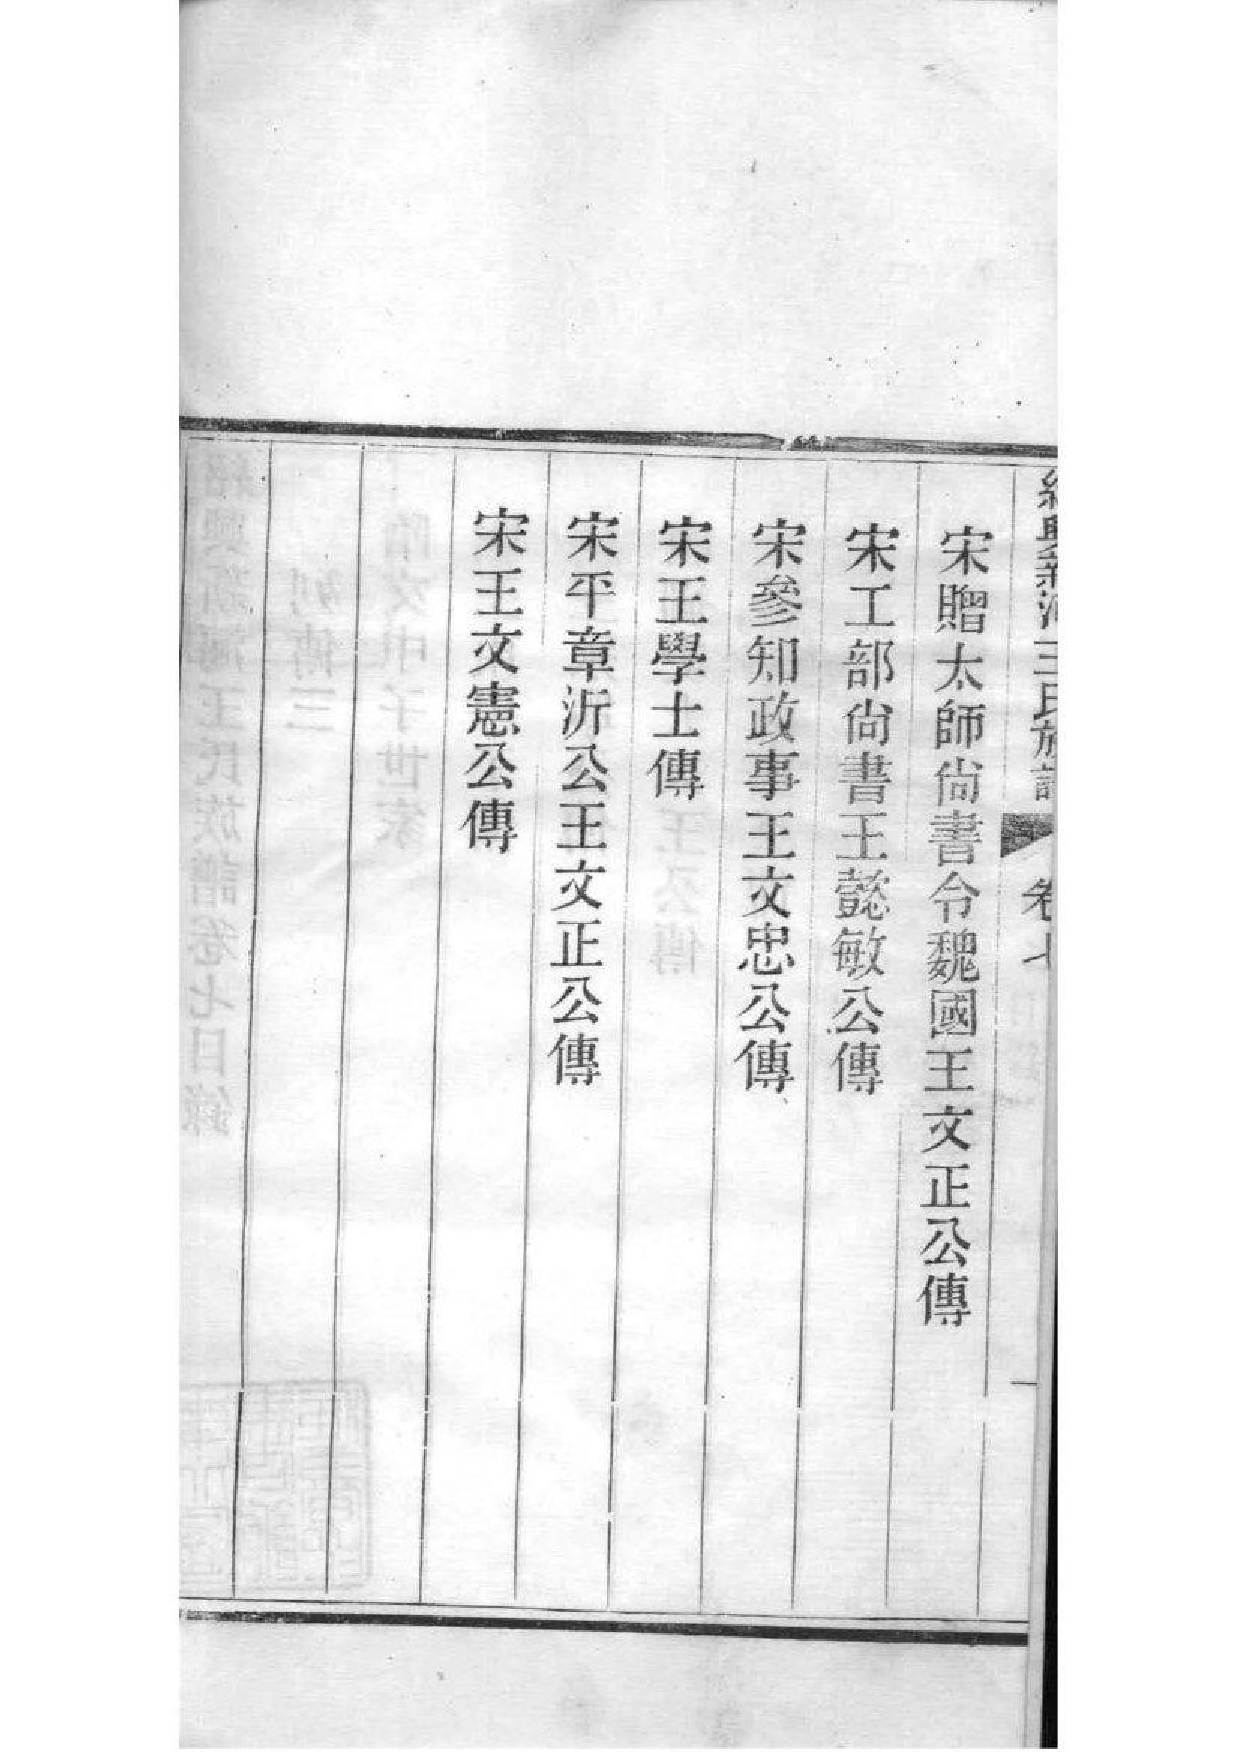 紹興新河王氏族譜 卷七
宋贈太師尚書令魏國王文正公傳
宋工部尚書王懿敏公傳
宋參知政事王文忠公傳
宋王學士傳
宋平章沂公王文正公傳
宋王文憲公傳